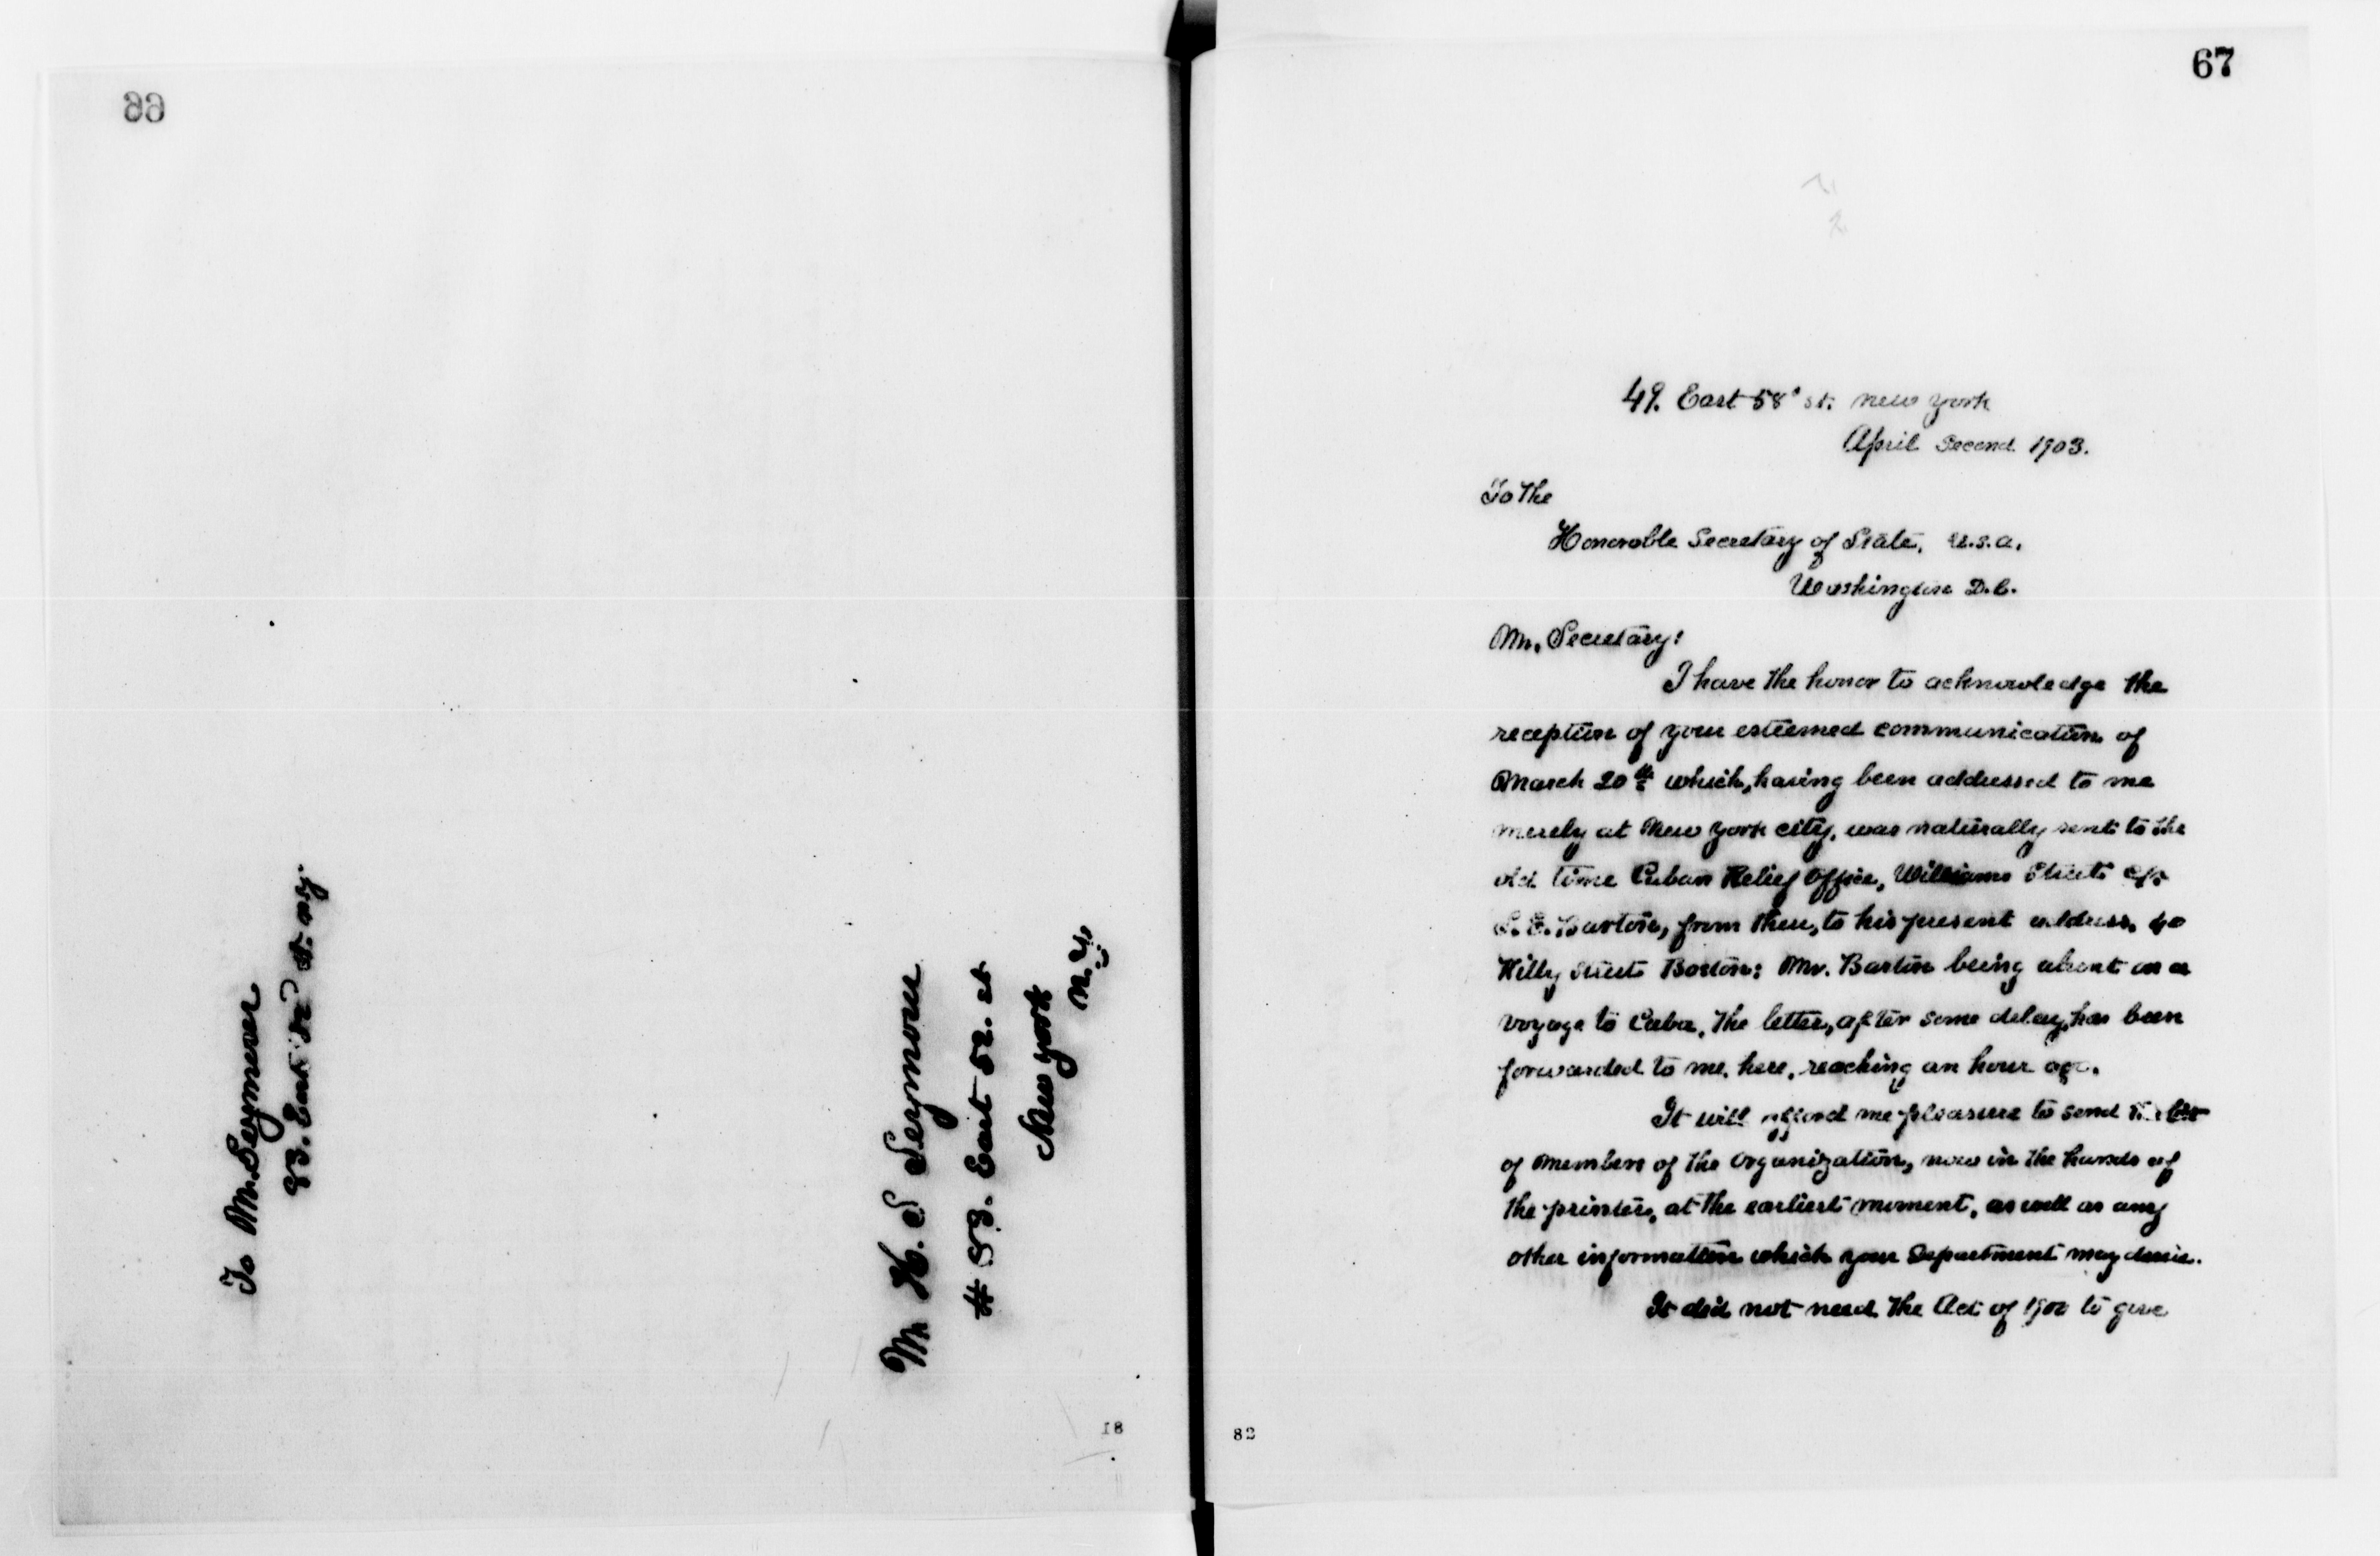 66
To Mr. Seymour
83. East 52 St. N.Y.
Mr H. S Seymour
# 83. East 52. st
New York
N.Y.
18
67
49. East 58' st. New York
April Second 1903.
To The
Honorable Secretary of State, U.S.A.
Washington D.C.
Mr. Secretary:
I have the honor to acknowledge the
reception of your esteemed communication of
March 20th which, having been addressed to me
merely at New York city, was naturally sent to the
old time Cuban Relief Office, Williams Street c/o
S. E. Barton, from there, to his present address, 40
Kilby Street Boston: Mr. Barton being absent on a
voyage to Cuba, The letter, after some delay, has been
forwarded to me, here, reaching an hour ago.
It will afford me pleasure to send the list
of Members of the Organization, now in the hands of
the printers, at the earliest moment, as well as any
other information which your Department may desire.
It did not need the Act of 1900 to give
82